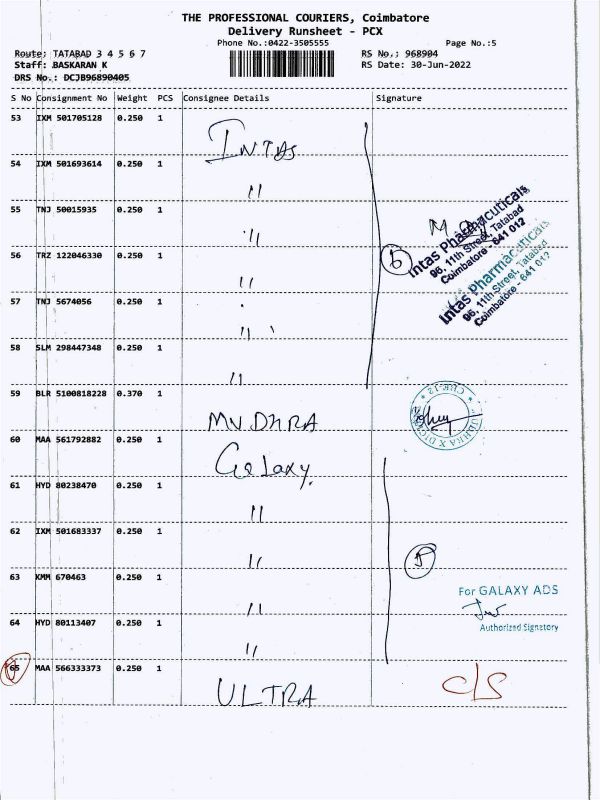 THE PROFESSIONAL COURIERS, Coimbatore
Delivery Runsheet - PCX
Phone No.:0422-3505555 Page No.:5
Route: TATABAD 3 4 5 6 7 RS No.: 968904
Staff: BASKARAN K RS Date: 30-Jun-2022
DRS No.: DCJB96890405
S No Consignment No Weight PCS Consignee Details Signature
53 IXM 501705128 0.250 1 INTAS
54 IXM 501693614 0.250 1 "
55 TNJ 50015935 0.250 1 "
56 TRZ 122046330 0.250 1 "
57 TNJ 5674056 0.250 1 "
58 SLM 298447348 0.250 1 "
Intas Pharmaceuticals
96, 11th Street, Tatabad
Coimbatore - 641 012
Intas Pharmaceuticals
96, 11th Street, Tatabad
Coimbatore - 641 012
59 BLR 5100818228 0.370 1 MUDHRA
60 MAA 561792882 0.250 1 Galaxy
61 HYD 80238470 0.250 1 "
62 IXM 501683337 0.250 1 "
63 KMM 670463 0.250 1 "
64 HYD 80113407 0.250 1 "
5
For GALAXY ADS
Authorized Signatory
65 MAA 566333373 0.250 1 ULTRA C/S